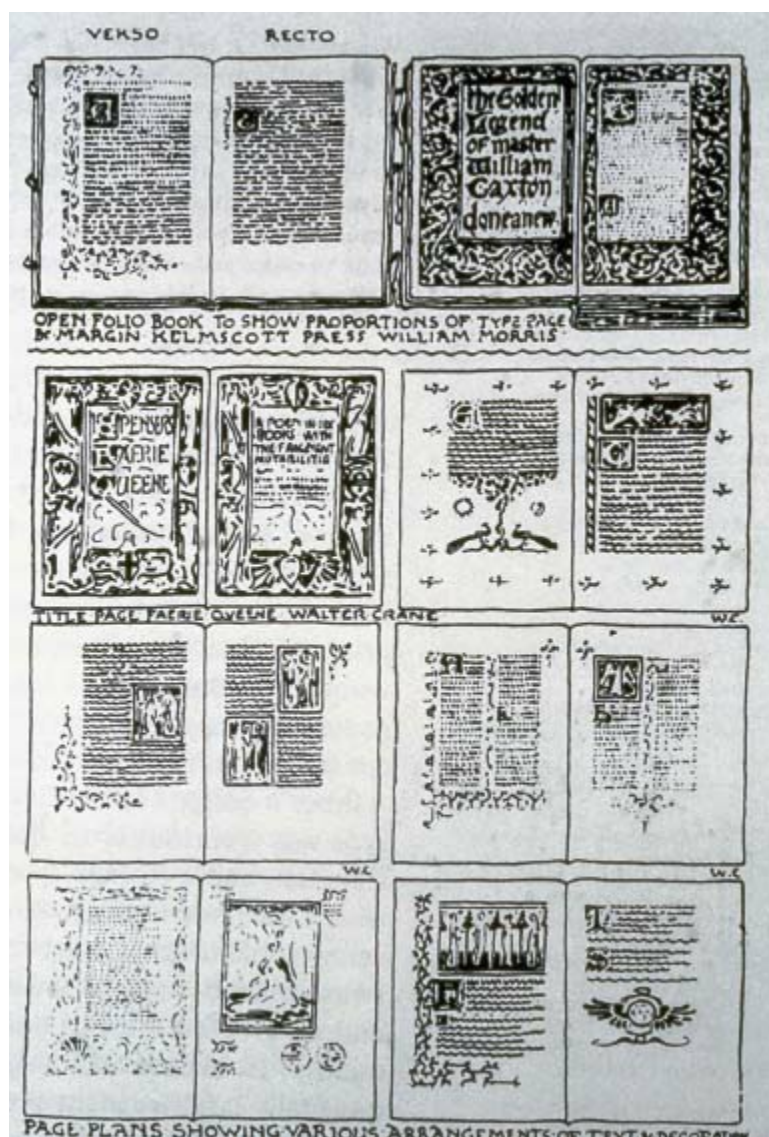 VERSO RECTO
The Golden
Legend
of master
William
Caxton
done anew.
OPEN FOLIO BOOK TO SHOW PROPORTIONS OF TYPE PAGE
& MARGIN KELMSCOTT PRESS WILLIAM MORRIS
SPENSERS
FAERIE
QUEENE
A POEM IN SIX
BOOKS WITH
THE FRAGMENT
MUTABILITIE
TITLE PAGE FAERIE QUEENE WALTER CRANE
W.C.
W.C.
W.C.
PAGE PLANS SHOWING VARIOUS ARRANGEMENTS OF TEXT & DECORATION